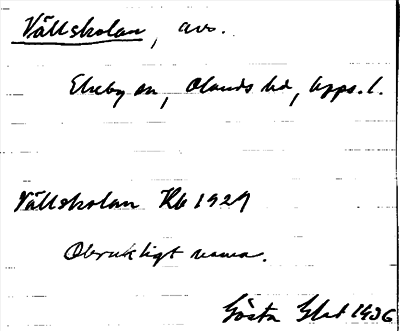 Vällskolan, avs.
Ekeby sn, Olands hd, Upps. l.
Vällskolan Kb 1929
Obrukligt namn.
Gösta 1906